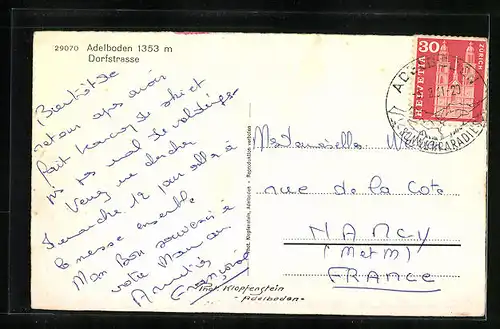 29070 Adelboden 1353 m
Dorfstrasse
Bientôt de
retour après avoir
fait beaucoup de ski et
pas mal de
Venez me chercher
Dimanche 12 pour aller à
la messe ensemble
Mon bon souvenir à
votre Maman
Amitiés
Françoise
Phot. Klopfenstein, Adelboden - Reproduktion verboten
Phot. Klopfenstein
- Adelboden -
30
HELVETIA
ZÜRICH
Mademoiselle
rue de la Côte
NANCY
(M et M)
FRANCE